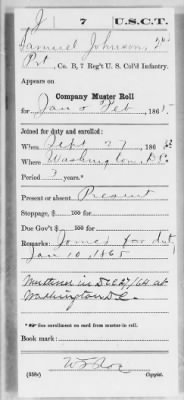 J 7 U.S.C.T.
Samuel Johnson, 2d
Pvt., Co. B, 7 Reg't U. S. Col'd Infantry.
Appears on
Company Muster Roll
for Jan & Feb, 1865.
Joined for duty and enrolled:
When Sept 27, 186
Where Washington, D.C.
Period 3 years.*
Present or absent, Present
Stoppage, $ 100 for
Due Gov't $ 100 for
Remarks: Joined for duty
Jan 10, 1865
Mustered in /64 at
Washington D.C.
* See enrollment on card from muster-in roll.
Book mark:
(358c) Copyist.